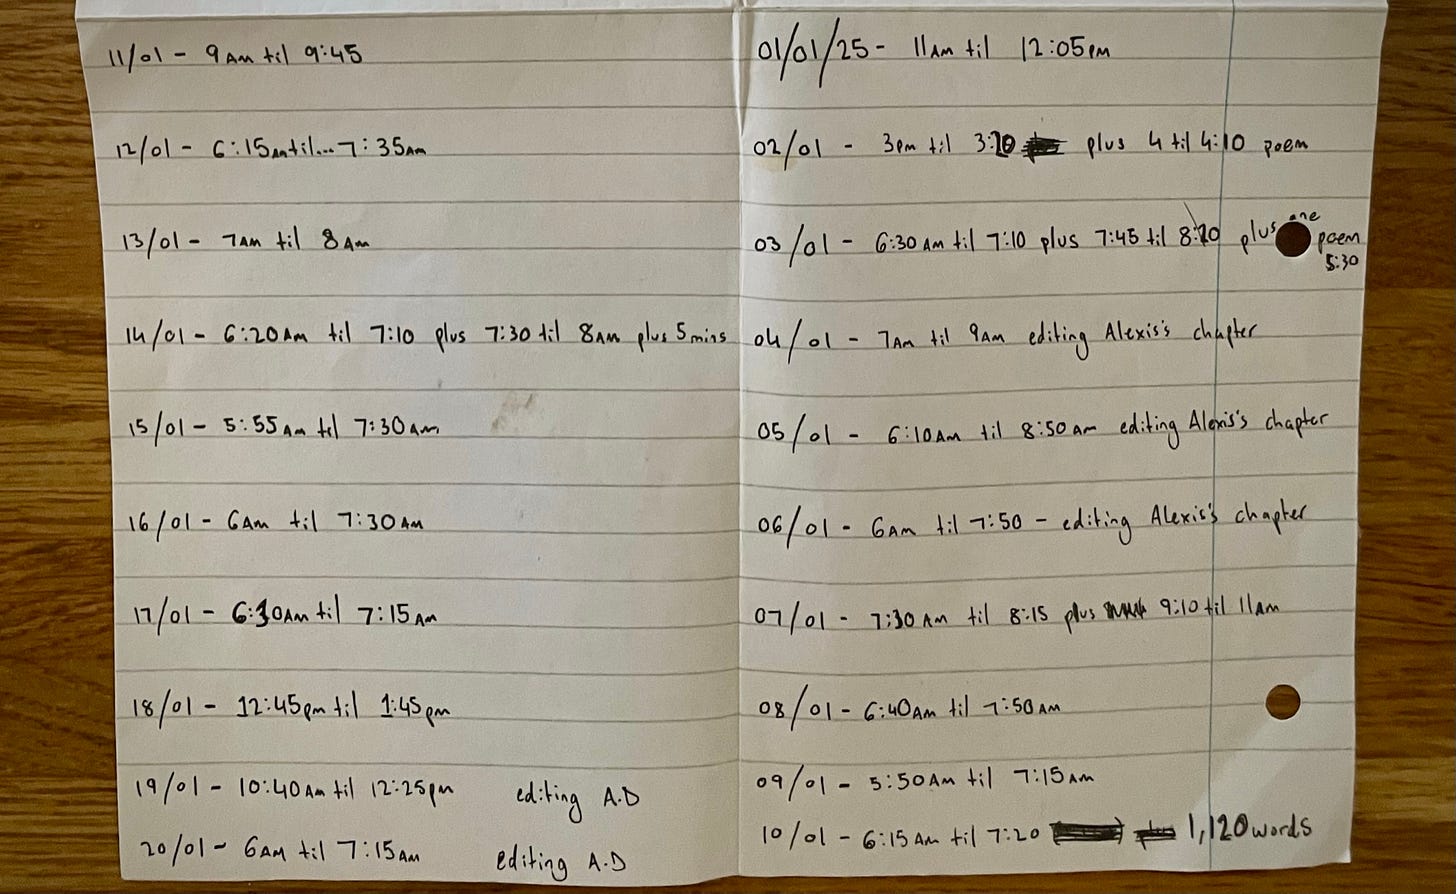 11/01 - 9AM til 9:45
12/01 - 6:15AM til... 7:35AM
13/01 - 7AM til 8AM
14/01 - 6:20AM til 7:10 plus 7:30 til 8AM plus 5mins
15/01 - 5:55AM til 7:30AM
16/01 - 6AM til 7:30AM
17/01 - 6:30AM til 7:15AM
18/01 - 12:45pm til 1:45pm
19/01 - 10:40AM til 12:25pm editing A.D
20/01 - 6AM til 7:15AM editing A.D
01/01/25 - 11AM til 12:05pm
02/01 - 3pm til 3:20 plus 4 til 4:10 poem
03/01 - 6:30AM til 7:10 plus 7:45 til 8:20 plus one poem
5:30
04/01 - 7AM til 9AM editing Alexis's chapter
05/01 - 6:10AM til 8:50am editing Alexis's chapter
06/01 - 6AM til 7:50 - editing Alexis's chapter
07/01 - 7:30AM til 8:15 plus 9:10 til 11am
08/01 - 6:40AM til 7:50AM
09/01 - 5:50AM til 7:15AM
10/01 - 6:15AM til 7:20 1,120 words